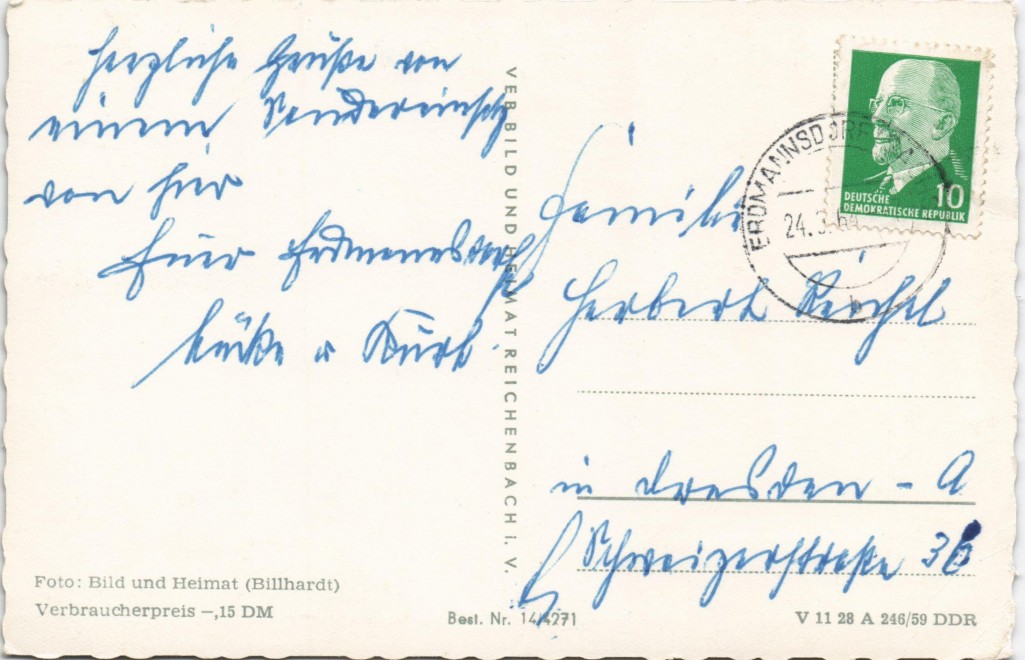 Herzliche Grüße von
einem Sondereinsatz
von hier
Erdmannsdorf
u Kurt.
VEB BILD UND HEIMAT REICHENBACH i. V.
DEUTSCHE
DEMOKRATISCHE REPUBLIK
10
ERDMANNSDORF
24.3.64
Familie
Herbert Reichel
in Dresden - A
Schweizerstraße 36
Foto: Bild und Heimat (Billhardt)
Verbraucherpreis -,15 DM
Best. Nr. 14/4271
V 11 28 A 246/59 DDR